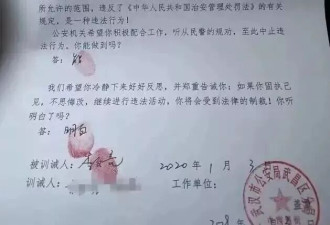 所允许的范围，违反了《中华人民共和国治安管理处罚法》的有
关规定，是一种违法行为！
公安机关希望你积极配合工作，听从民警的规劝，至此中止违
法行为。你能做到吗？
答：能
我们希望你冷静下来好好反思，并郑重告诫你：如果你固执己
见，不思悔改，继续进行违法活动，你将会受到法律的制裁！你听
明白了吗？
答：明白
被训诫人：李文亮 2020年1月3
训诫人： 工作单位：
武汉市公安局武昌区